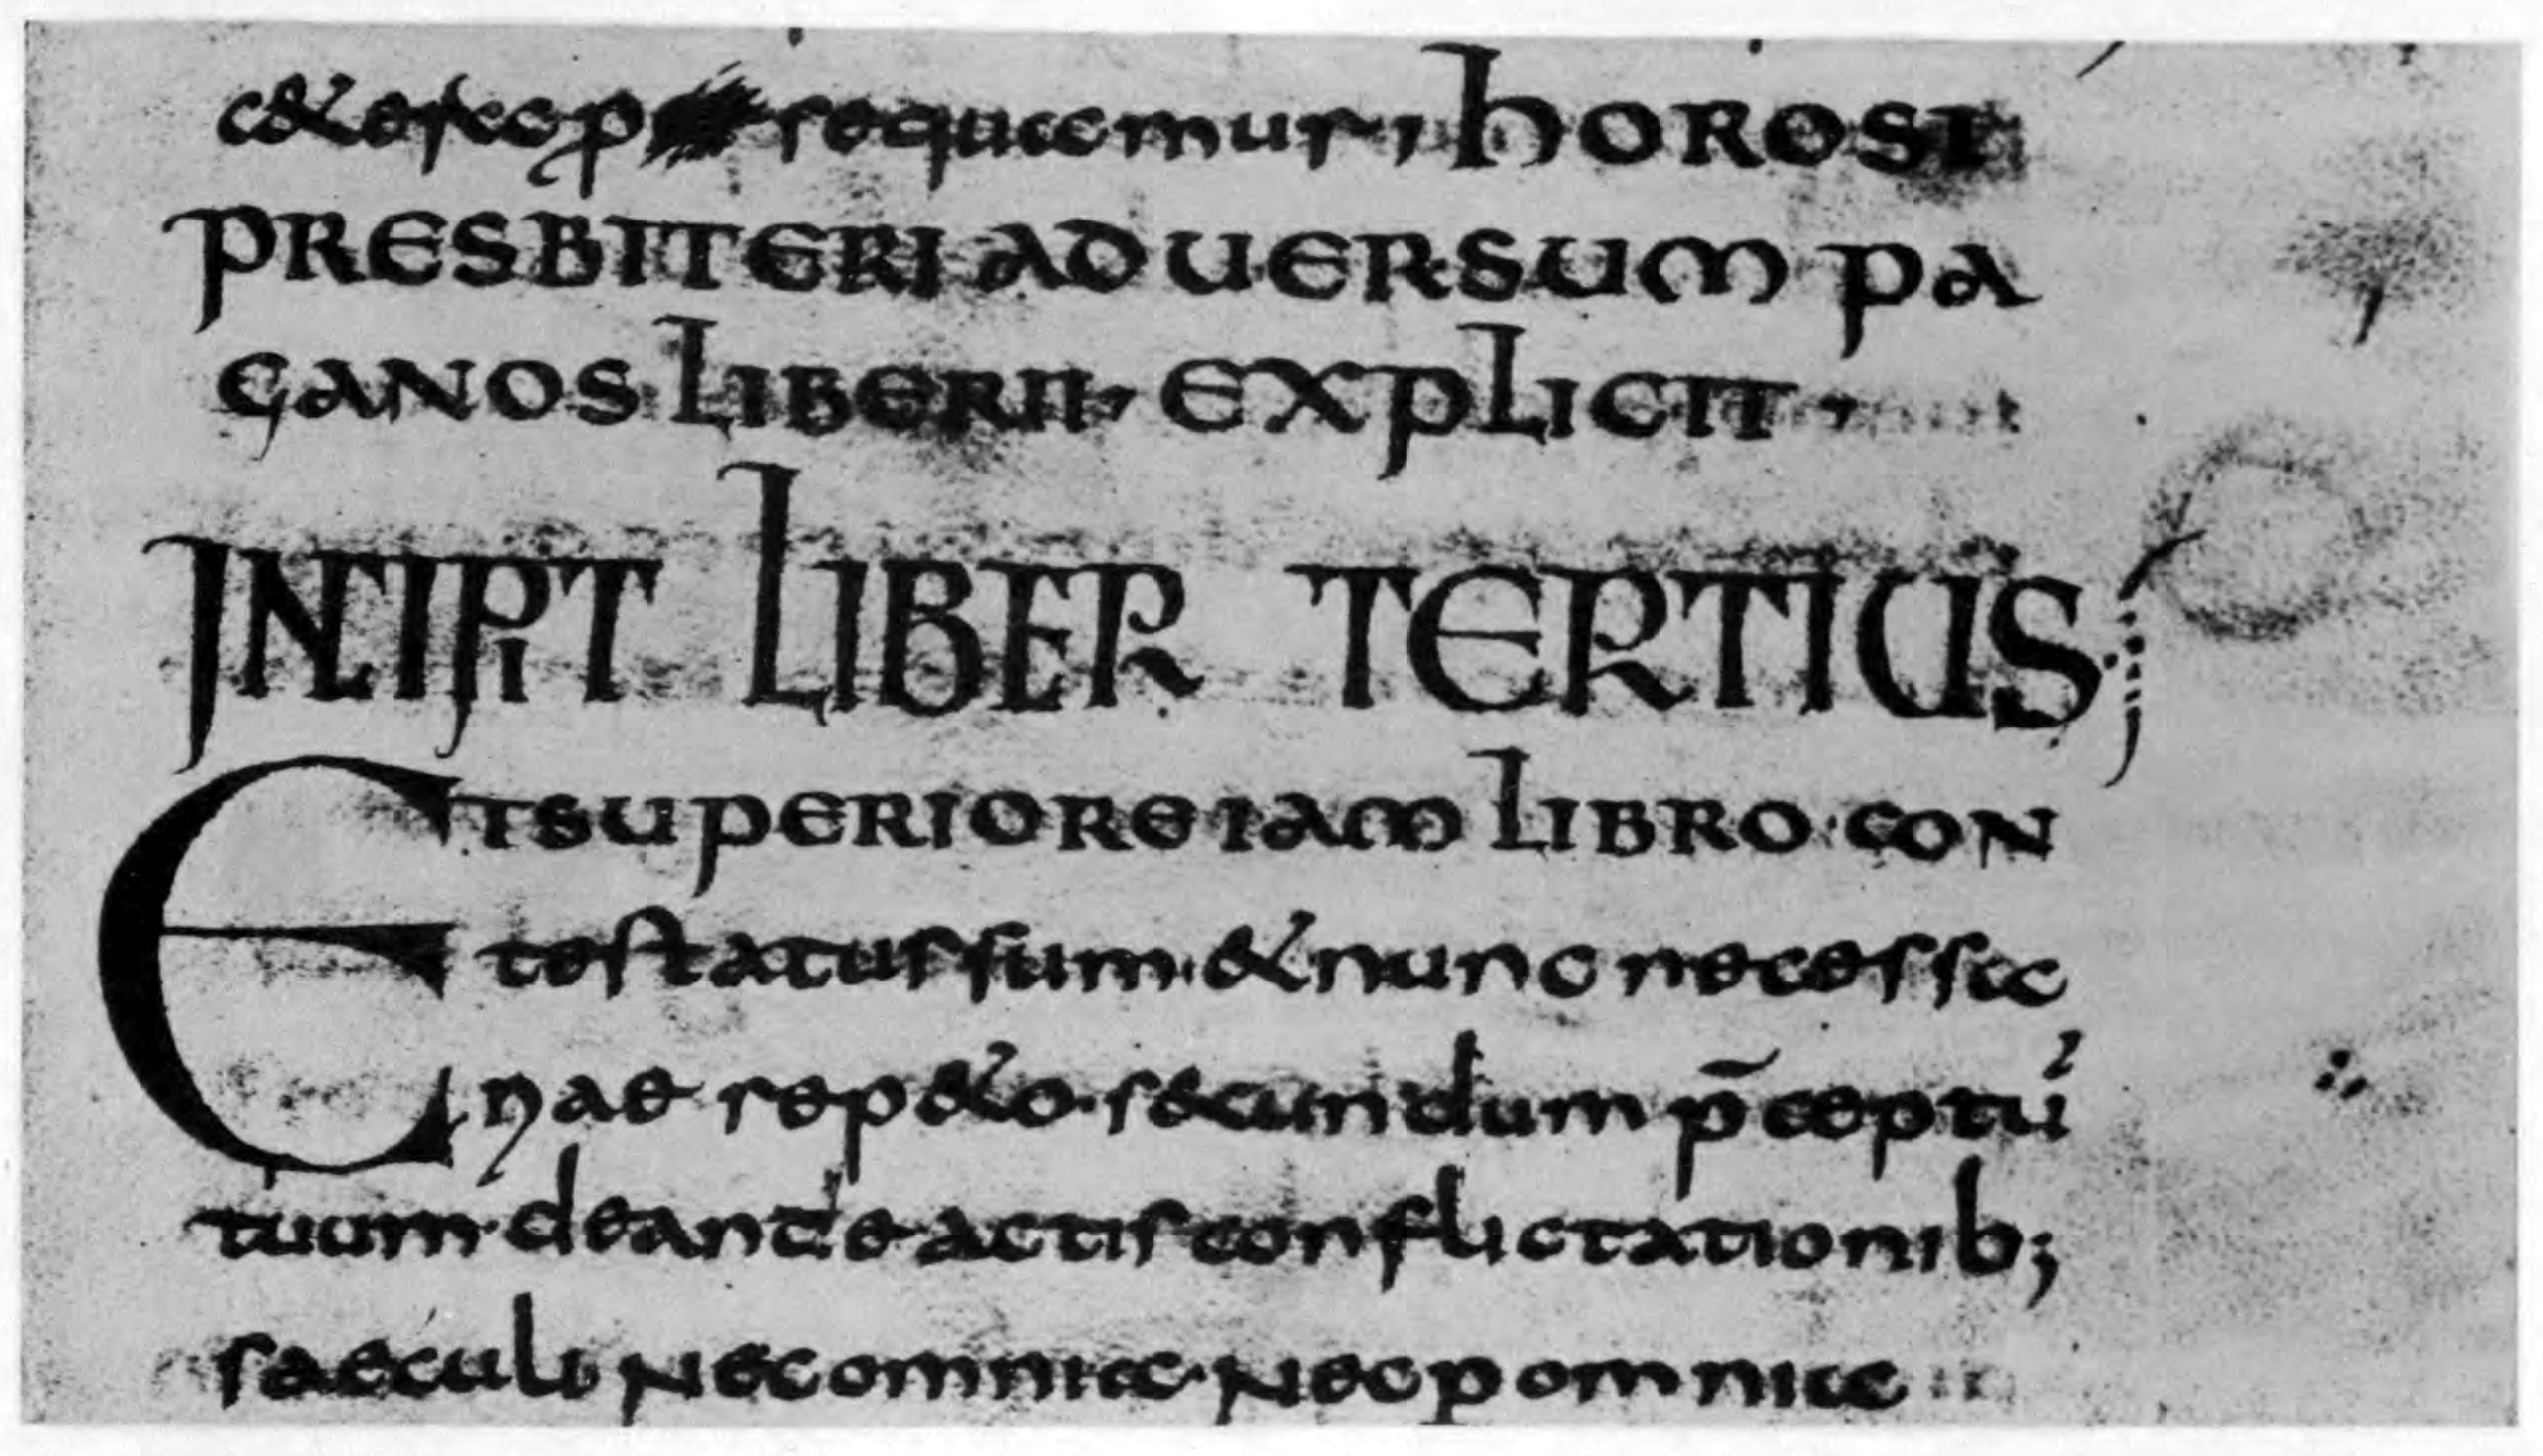 c&era p sequamur, HOROSI
PRESBITERI ADUERSUM PA
GANOS LIBER II, EXPLICIT,
INCIPIT LIBER TERTIUS;
ET SUPERIORE IAM LIBRO CON
testatus sum & nunc necessa
riae rep&o secundum p̄ceptū
tuum de ante actis conflictationib;
saeculi Nec omnia Nec p omnia